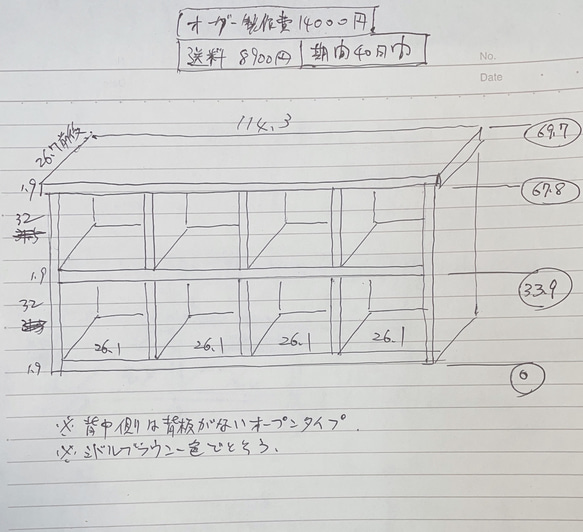 オーダー製作費 14000円
送料 8900円 期間40日内
No.
Date
114.3
26.7前後
69.7
1.9
67.8
32
1.9
33.9
32
26.1 26.1 26.1 26.1
1.9
0
※ 背中側は背板がないオープンタイプ.
※ ミドルブラウン一色でとそう.